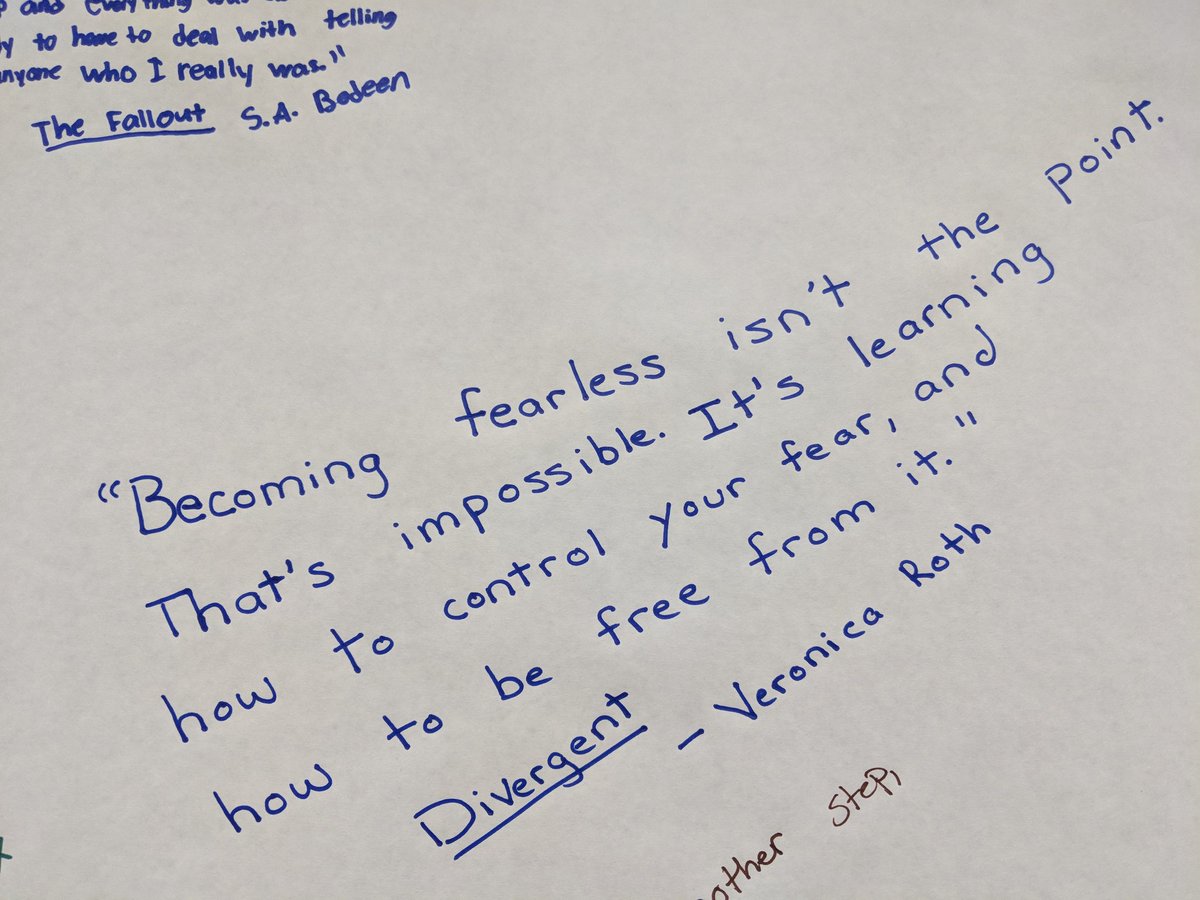 and everything
to have to deal with telling
anyone who I really was."
The Fallout S.A. Bodeen
"Becoming fearless isn't the point.
That's impossible. It's learning
how to control your fear, and
how to be free from it."
Divergent - Veronica Roth
step,